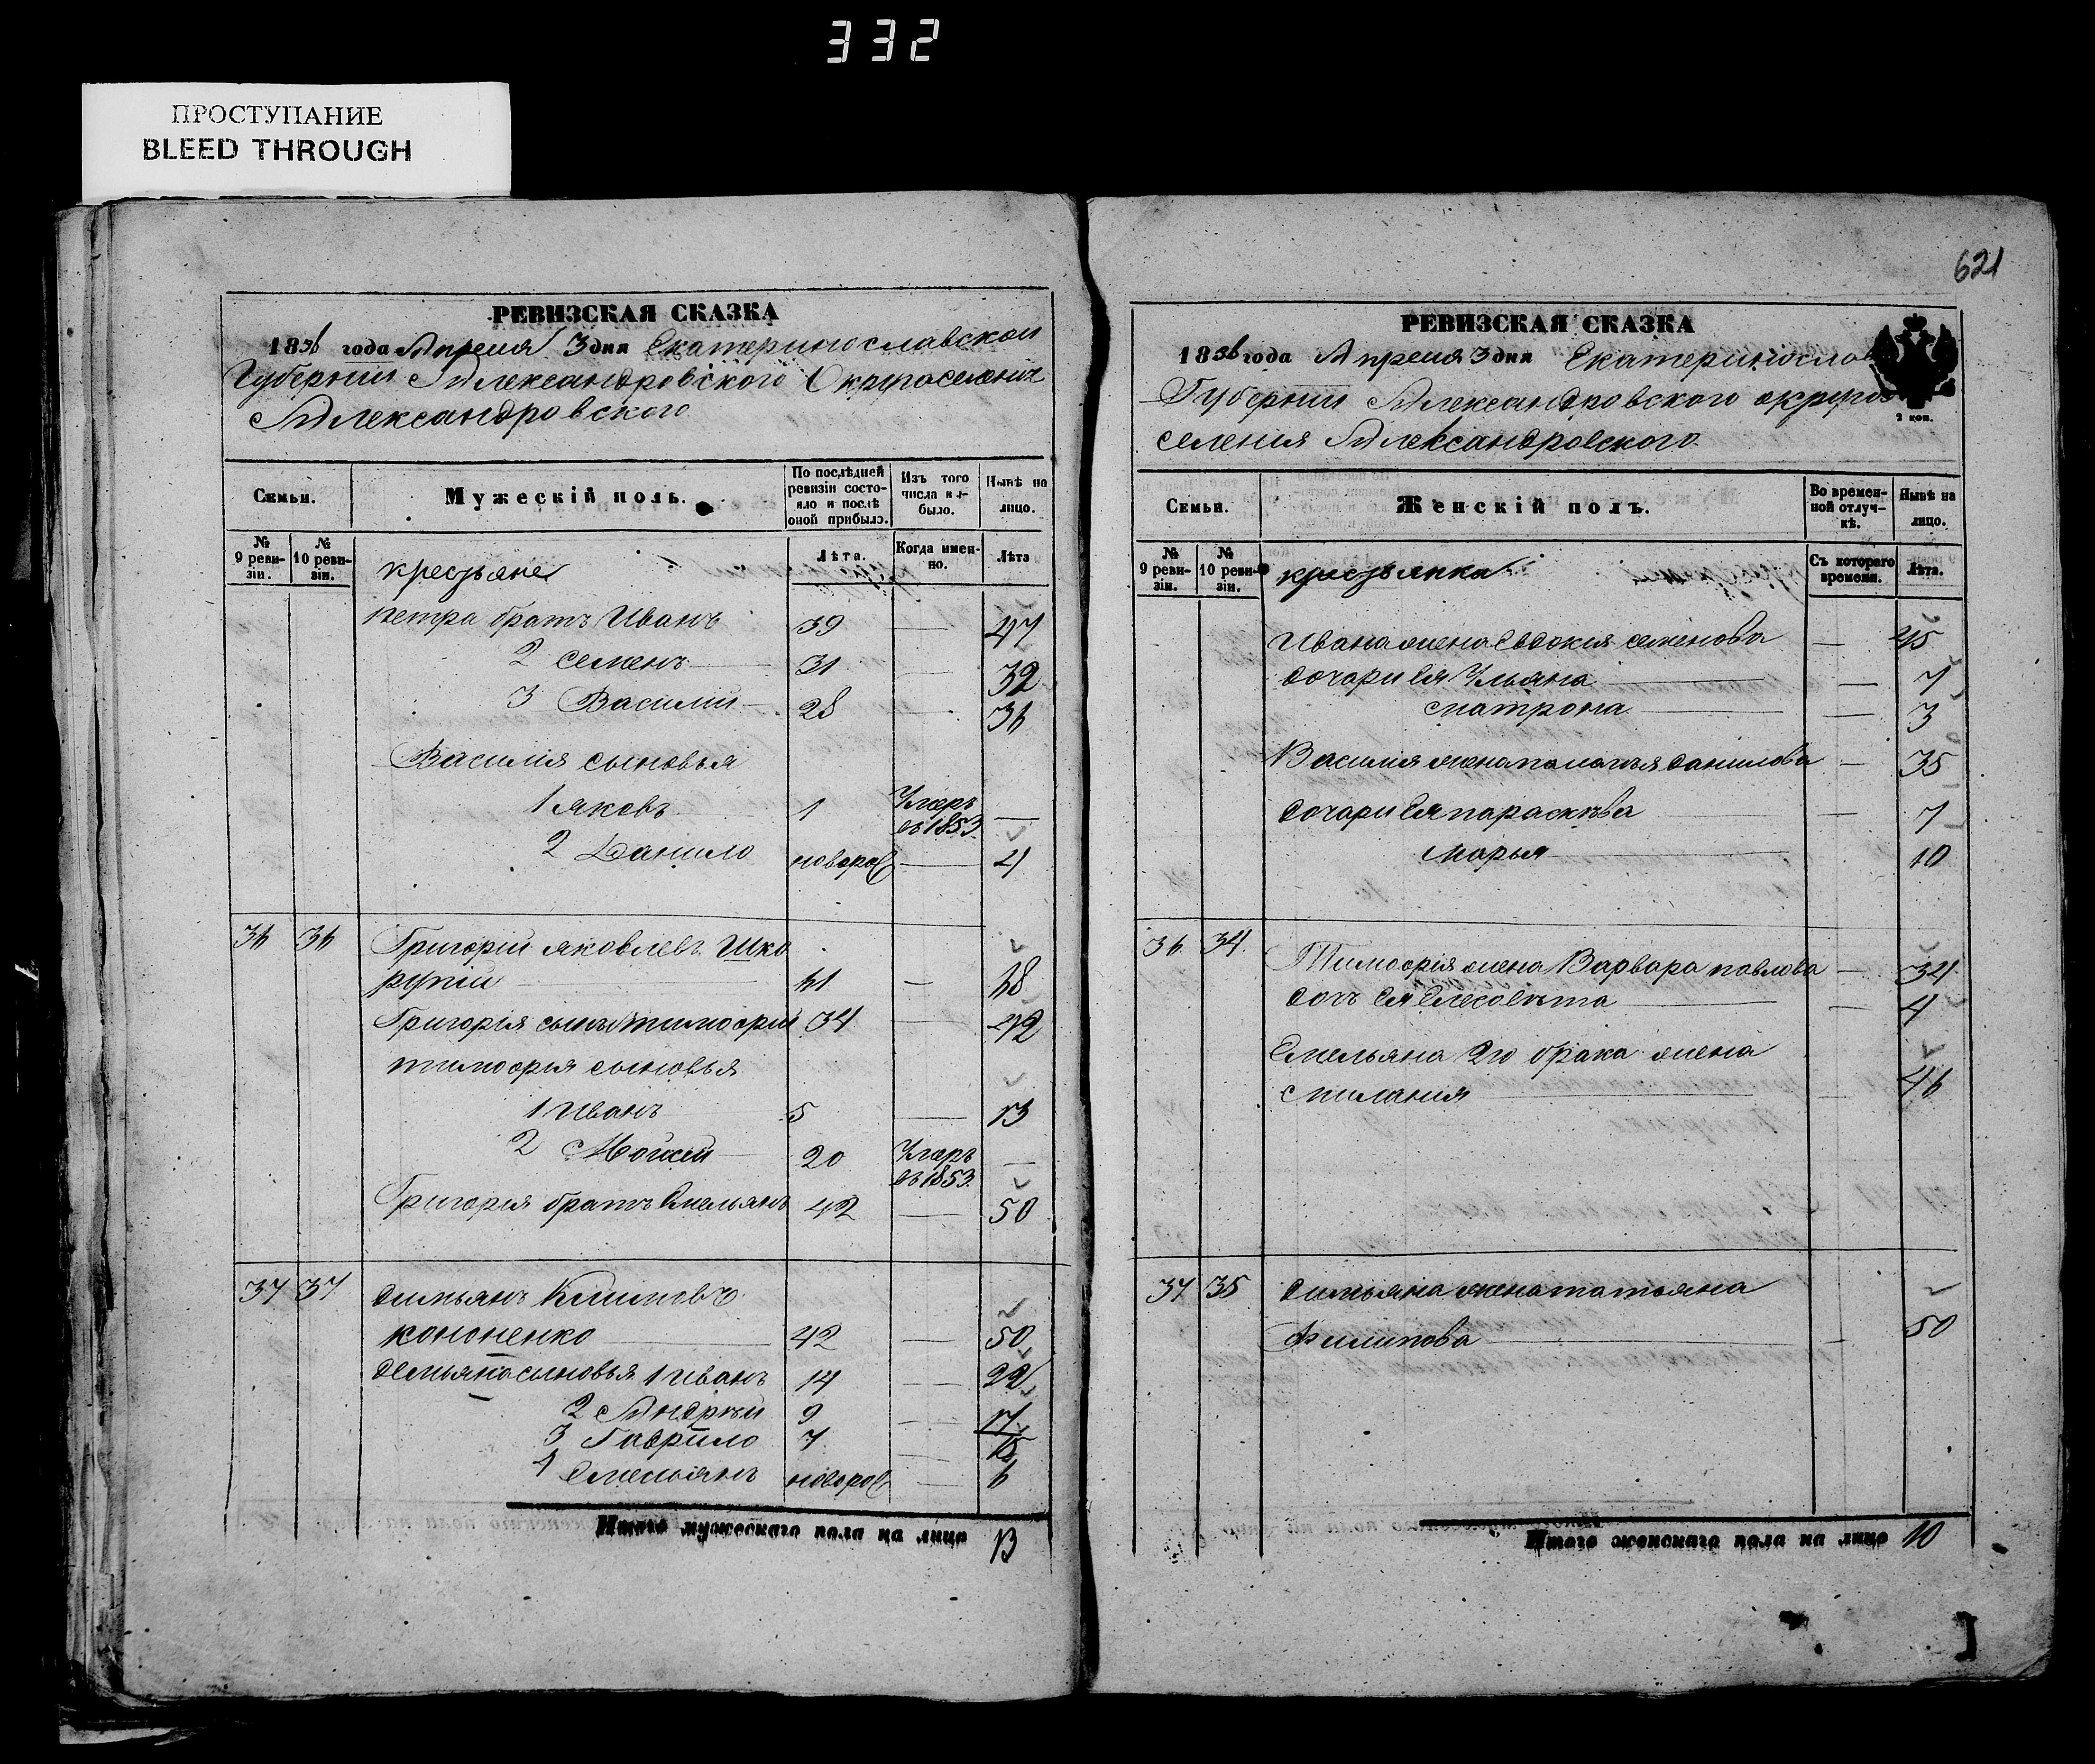 332
ПРОСТУПАНИЕ
BLEED THROUGH
РЕВИЗСКАЯ СКАЗКА
1856 года Апреля 3 дня Екатеринославской
Губернии Александровского Округа селенія
Александровского
Семьи.
Мужескій полъ.
По послѣдней ревизіи состояло и послѣ оной прибыло.
Изъ того числа выбыло.
Нынѣ на лицо.
№ 9 ревизіи.
№ 10 ревизіи.
крестьяне
Лѣта.
Когда именно.
Лѣта
петра братъ Иванъ 39 — 47
2 семенъ 31 — 39
3 Василий 28 — 36
Василія сыновья
1 яковъ 1 Умеръ въ 1853 —
2 Данило новорож — 4
36 36 Григорій яковлевъ Шко
рупій 61 — 68
Григорія сынъ тимофрий 34 — 42
тимофрія сыновья
1 Иванъ 5 — 13
2 Мойсей 20 Умеръ въ 1853. —
Григорія братъ Емельянъ 42 — 50
37 37 димьянъ Климовъ
кононенко 42 — 50
демьяна сыновья 1 иванъ 14 — 22
2 Андрѣй 9 — 17
3 Гаврило 7 — 15
4 Емельянъ новорож — 6
Итого мужескаго пола на лицо 13
621
РЕВИЗСКАЯ СКАЗКА
1856 года Апреля 3 дня Екатеринослав
Губернии Александровского округа
2 коп.
селенія Александровского
Семьи.
Женскій полъ.
Во временной отлучкѣ.
Нынѣ на лицо.
№ 9 ревизіи.
№ 10 ревизіи.
крестьянка
Съ котораго времени.
Лѣта.
Ивана жена Евдокія семенова — 45
дочери Ея Ульяна — 7
матрона — 3
Василия жена палагея данилова — 35
дочери Ея параскѣва — 7
Марья 10
36. 34. Тимофрія жена Варвара павлова — 34
дочь Ея Елесовѣта — 4
Емельяна 2го брака жена
милания — 46
37 35 димьяна жена татьяна
Филипова — 50
Итого женскаго пола на лицо 10